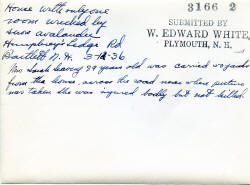 3166 2
House with only one
room wrecked by
snow avalanche
Humphrey's Ledge Rd
Bartlett N.H. 3-12-36
SUBMITTED BY
W. EDWARD WHITE,
PLYMOUTH, N. H.
Mrs Sarah 79 years old was carried yards
from the house, across the road near where picture
was taken she was injured badly but not killed.